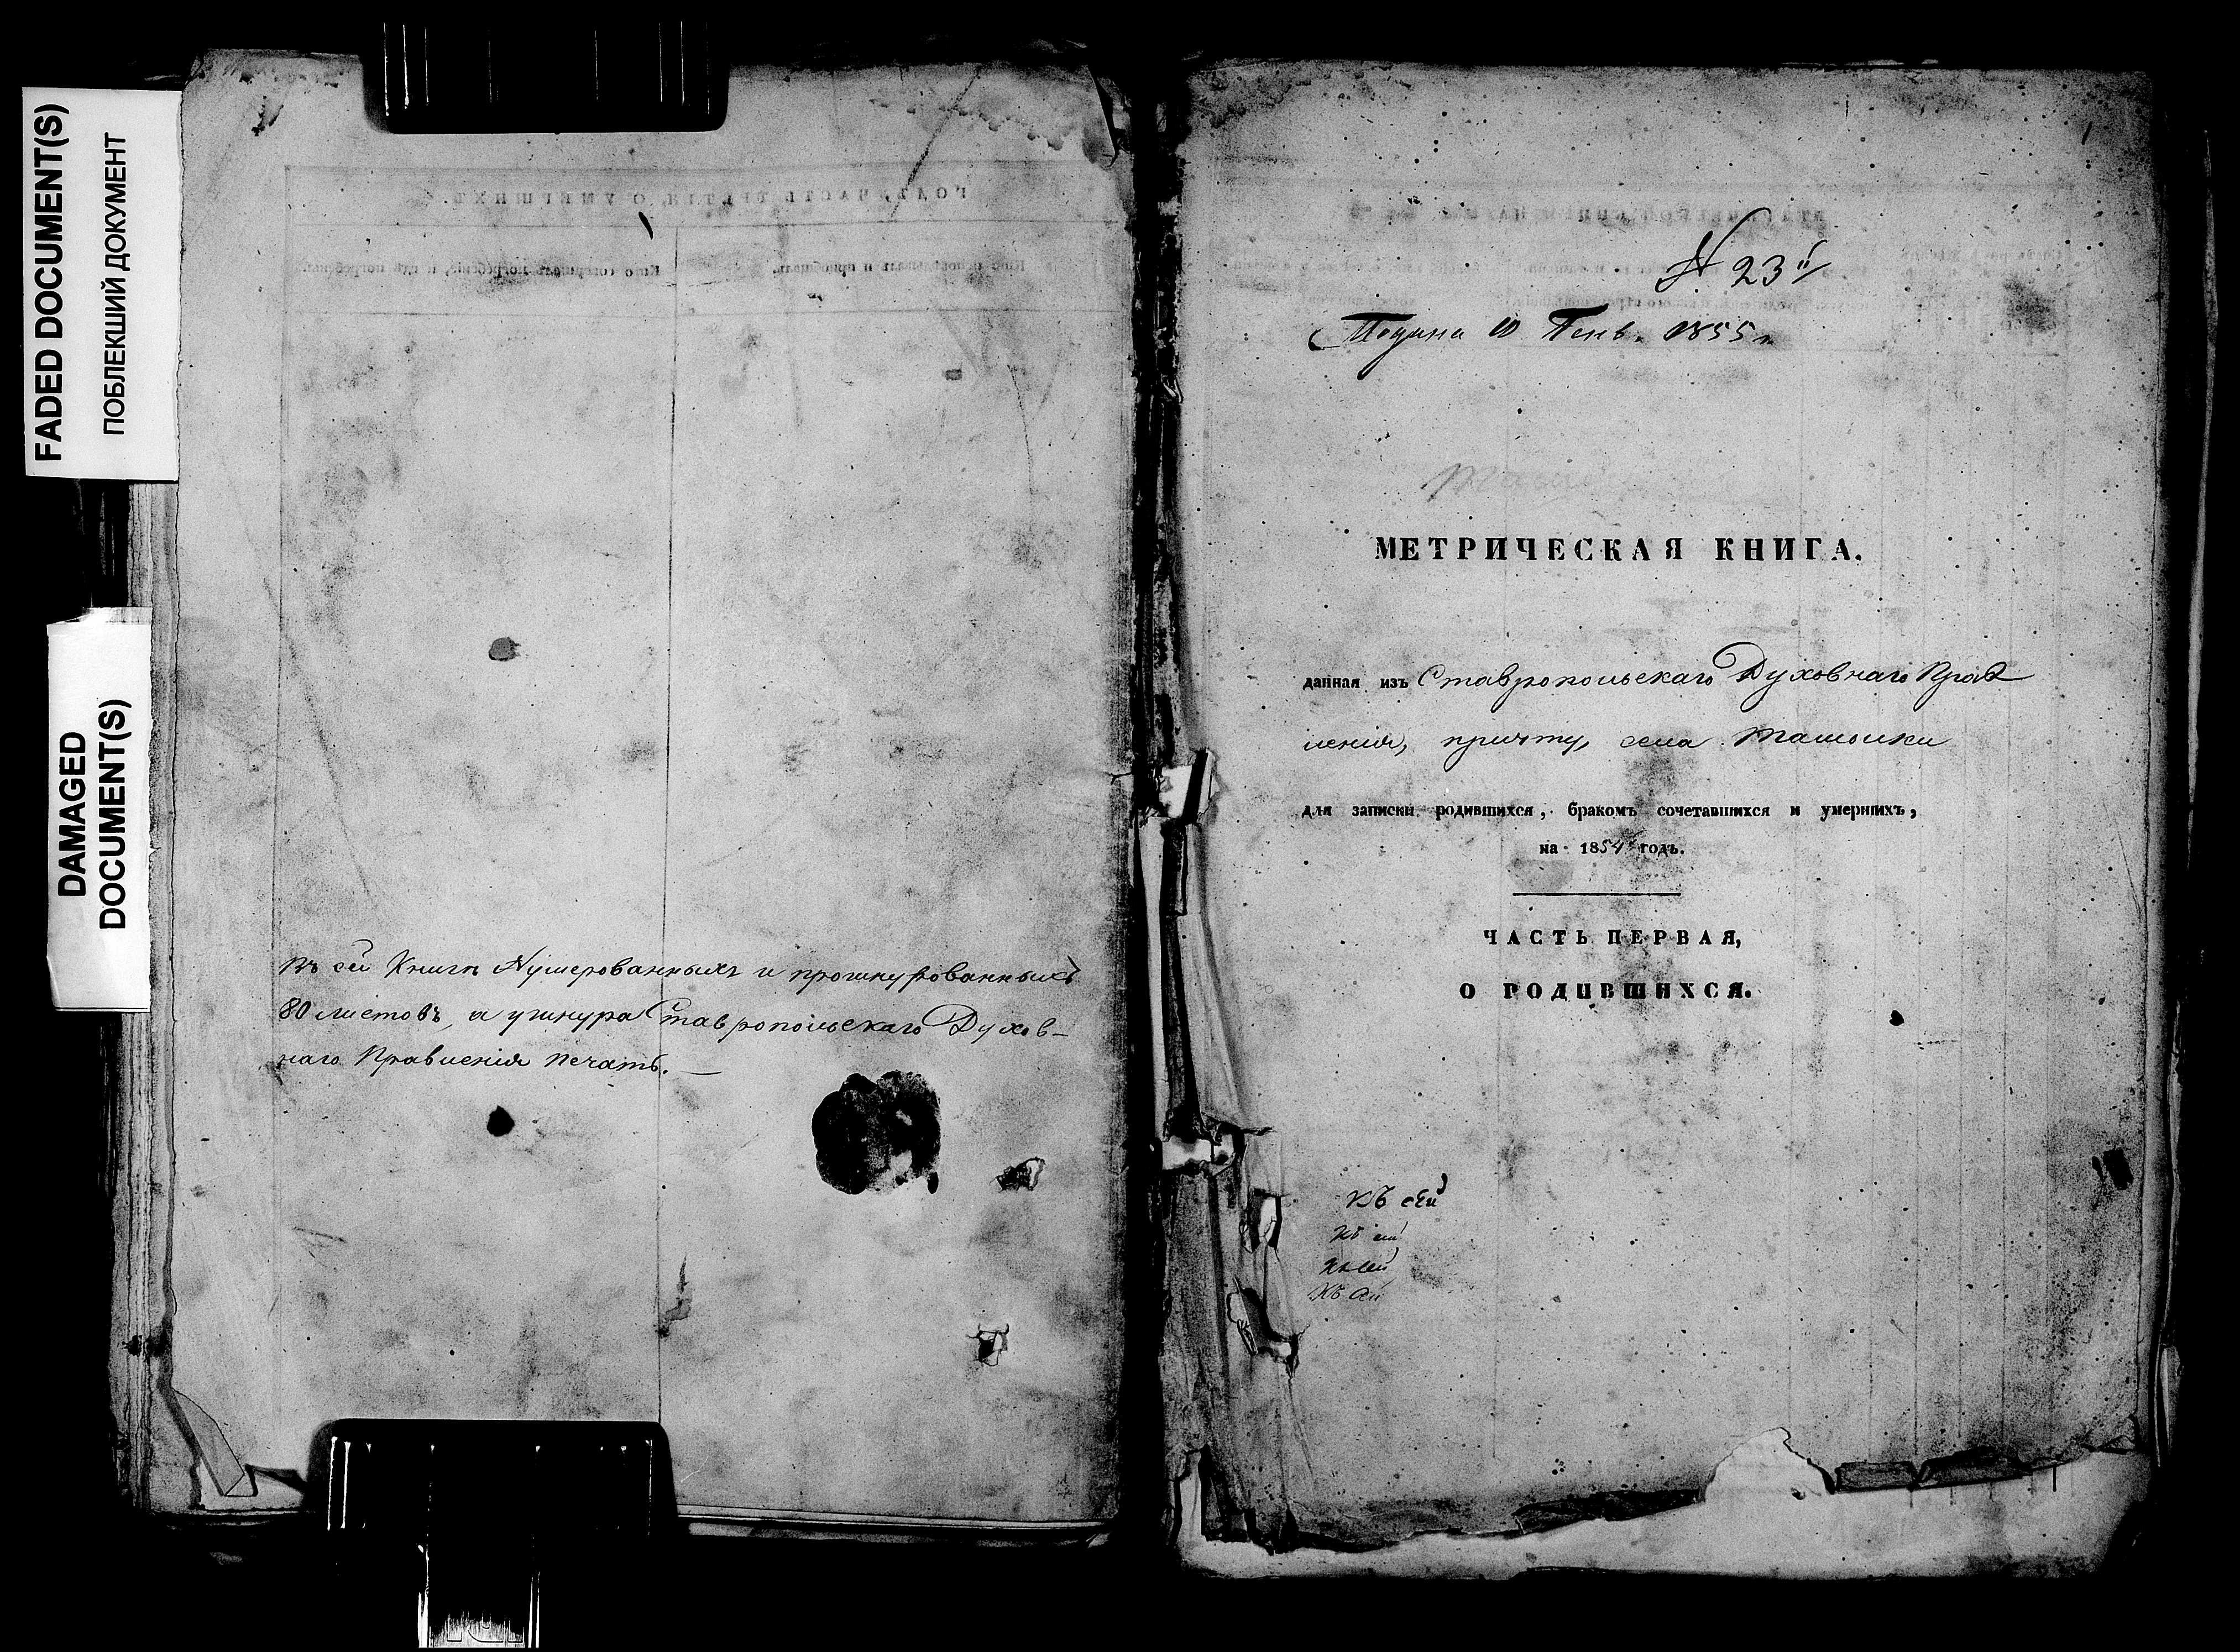 FADED DOCUMENT(S)
ПОБЛЕКШИЙ ДОКУМЕНТ
DAMAGED
DOCUMENT(S)
Въ сей Книгѣ Нумерованныхъ и прошнурованныхъ
80 листовъ, а у шнура Ставропольскаго Духов-
наго Правленія печать.
1
№ 23й
Подана 10 Генв. 1855 г.
МЕТРИЧЕСКАЯ КНИГА.
данная изъ Ставропольскаго Духовнаго Прав
ленія, причту, села Ташолки
для записки родившихся, бракомъ сочетавшихся и умершихъ,
на 1854 годъ.
ЧАСТЬ ПЕРВАЯ,
О РОДИВШИХСЯ.
Къ сей
Къ сей
Къ сей
Къ сей